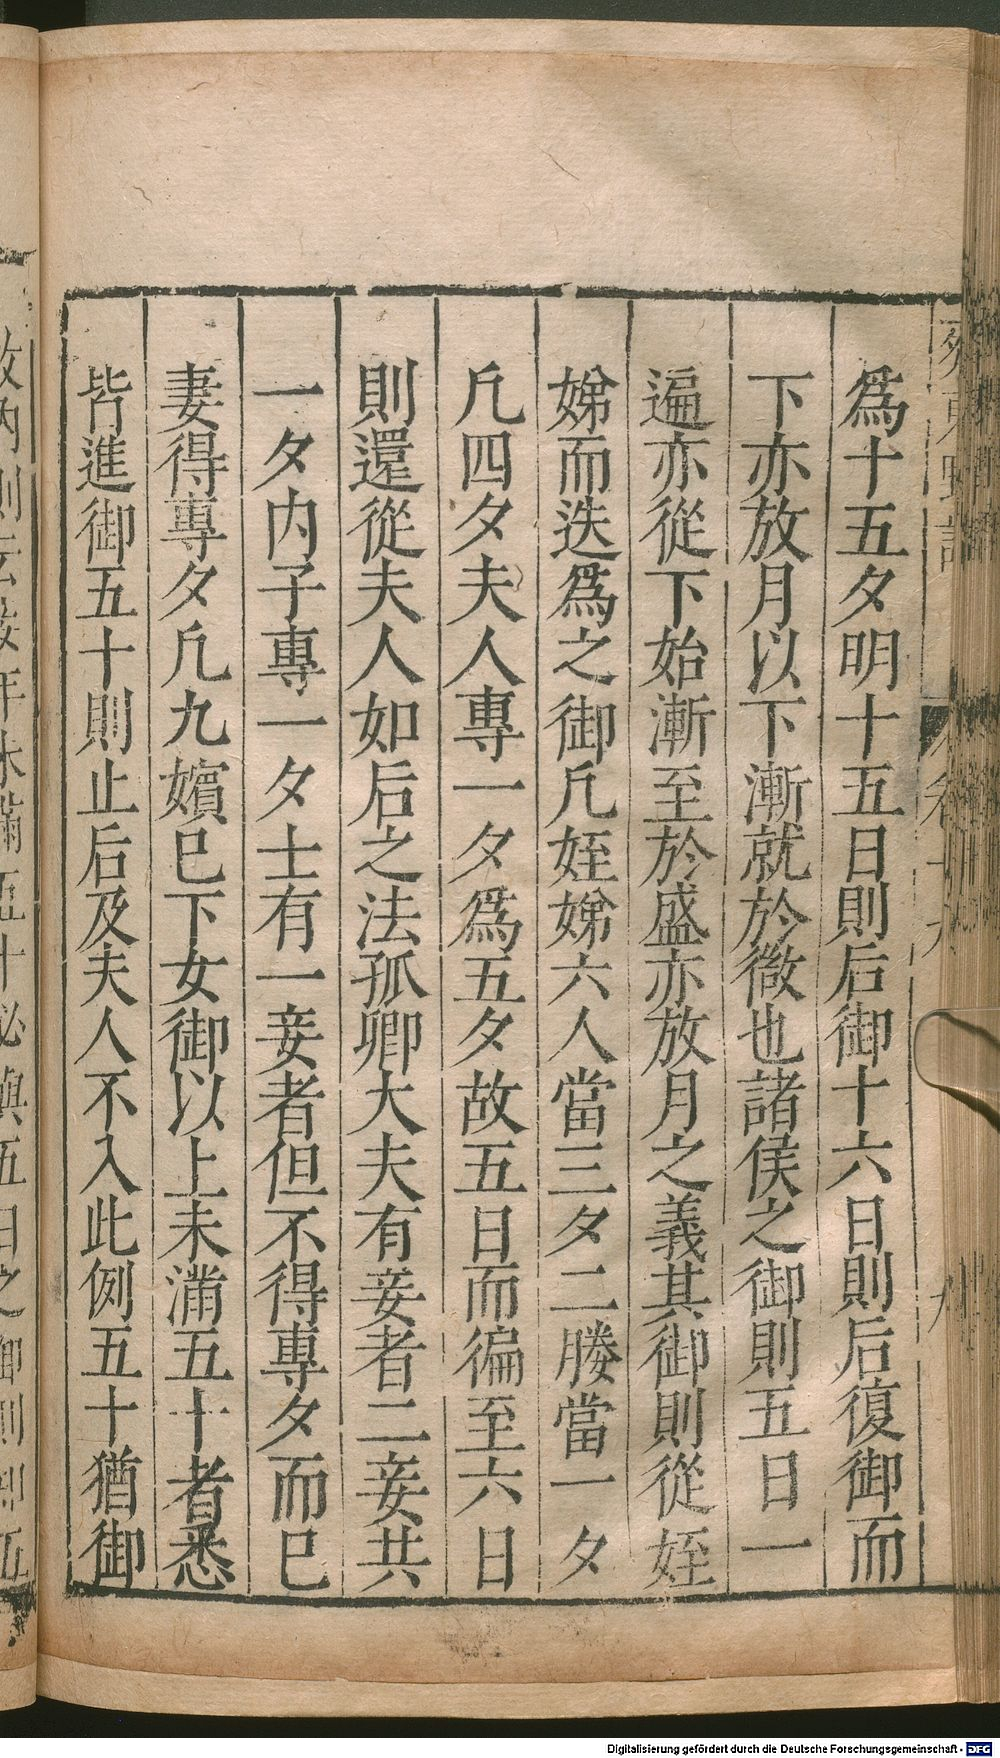 爲十五夕明十五日則后御十六日則后復御而
下亦放月以下漸就於微也諸侯之御則五日一
遍亦從下始漸至於盛亦放月之義其御則從姪
娣而迭爲之御凡姪娣六人當三夕二媵當一夕
凡四夕夫人專一夕爲五夕故五日而徧至六日
則還從夫人如后之法孤卿大夫有妾者二妾共
一夕内子專一夕士有一妾者但不得專夕而巳
妻得專夕凡九嬪巳下女御以上未滿五十者悉
皆進御五十則止后及夫人不入此例五十猶御
故内則云妾年未滿五十必與五日之御則知五
Digitalisierung gefördert durch die Deutsche Forschungsgemeinschaft - DFG